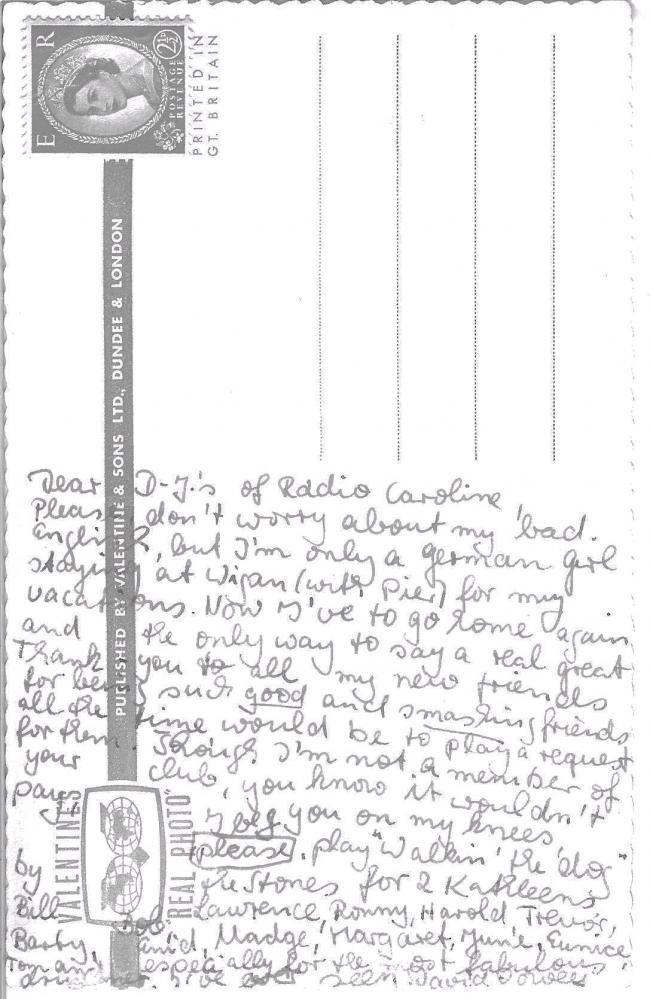 E R
POSTAGE
REVENUE
2½D
PRINTED IN
GT. BRITAIN
PUBLISHED BY VALENTINE & SONS LTD., DUNDEE & LONDON
VALENTINE'S
REAL PHOTO
Dear D-J.'s of Radio Caroline
Please, don't worry about my bad
English, but I'm only a german girl
staying at Wigan (with Pier) for my
vacations. Now I've to go home again
and the only way to say a real great
Thank you to all my new friends
for being such good and smashing friends
all the time would be to play a request
for them. Though I'm not a member of
your club, you know it wouldn't
pay. I beg you on my knees
please, play "Walkin' the dog"
by the Stones for 2 Kathleens
Bill, Bob, Lawrence, Ronny, Harold, Trevor,
Barby, and Madge, Margaret, June, Eunice
Tom and especially for the most fabulous
drummer I've ever seen David